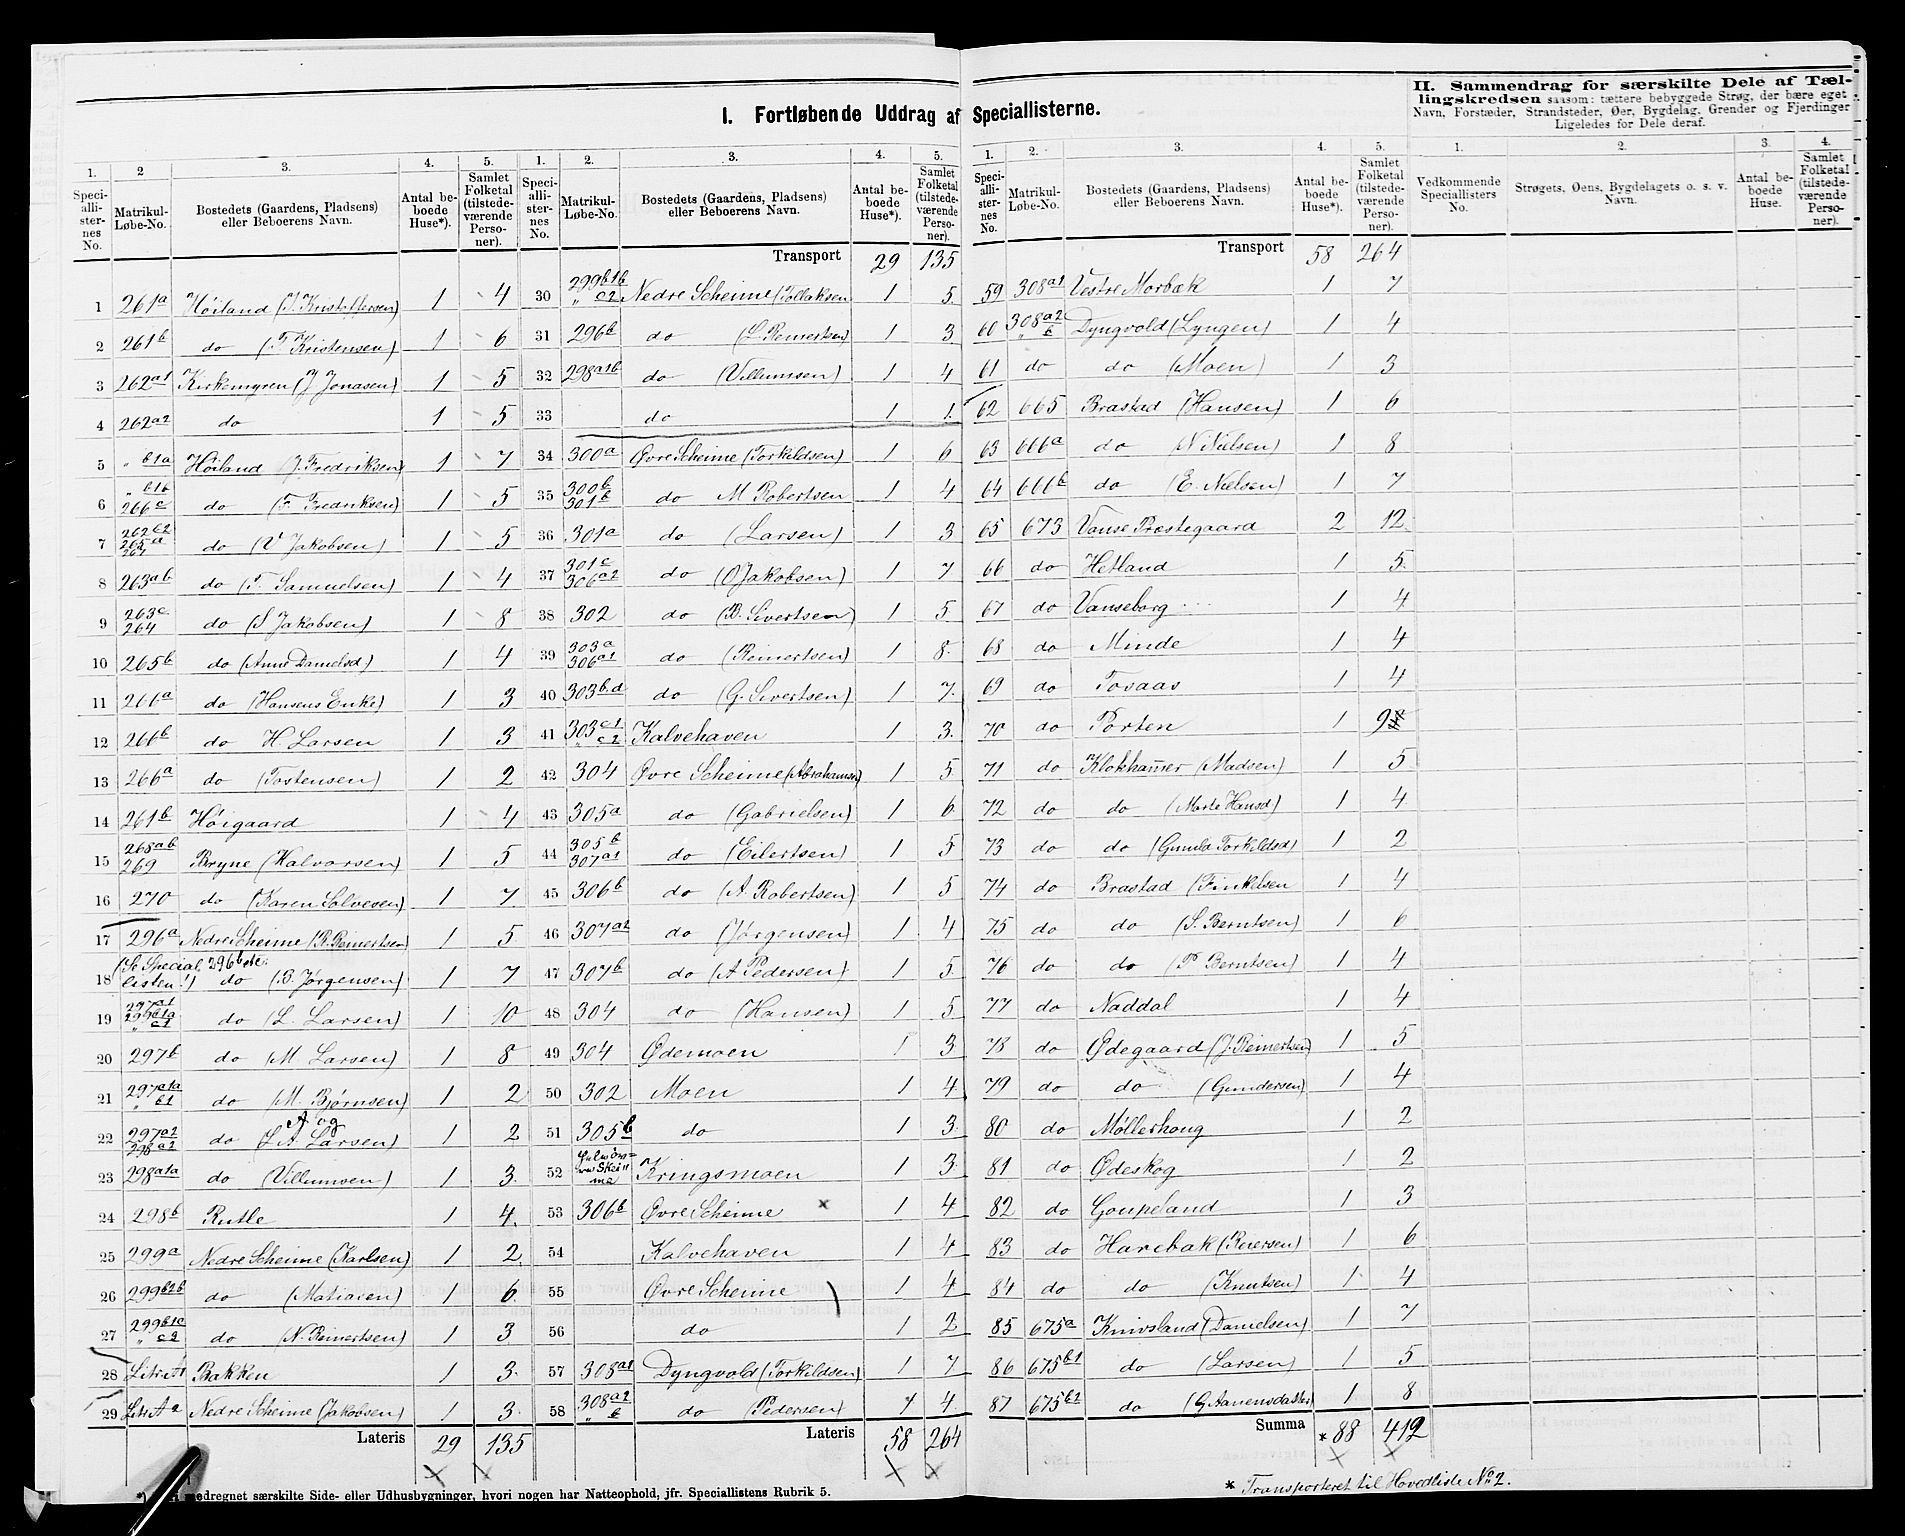 I. Fortløbende Uddrag af Speciallisterne.
II. Sammendrag for særskilte Dele af Tællingskredsen saasom: tættere bebyggede Strøg, der bære eget
Navn, Forstæder, Strandsteder, Øer, Bygdelag, Grender og Fjerdinger
Ligeledes for Dele deraf.
1. 2 3. 4. 5. 1. 2. 3. 4. 5.
Speciallisternes No. Matrikul-Løbe-No. Bostedets (Gaardens, Pladsens) eller Beboerens Navn. Antal beboede Huse*). Samlet Folketal (tilstedeværende Personer). Speciallisternes No. Matrikul-Løbe-No. Bostedets (Gaardens, Pladsens) eller Beboerens Navn. Antal beboede Huse*). Samlet Folketal (tilstedeværende Personer).
1 261a Høiland (J. Kristoffersen) 1 4
2 261b do (T. Kristensen) 1 6
3 262a1 Kirkemyren (J Jonasen) 1 5
4 262a2 do 1 5
5 " b1a Høiland (J. Fredriksen) 1 7
6 " b1b 266c do (F. Fredriksen) 1 5
7 262b2 265a 267 do (V Jakobsen) 1 5
8 263ab do (T. Samuelsen) 1 4
9 263c 264 do (S Jakobsen) 1 8
10 265b do (Anne Danielsd) 1 4
11 266a do (Hansens Enke) 1 3
12 266b do H. Larsen 1 3
13 266a do (Tostensen) 1 2
14 261b Høigaard 1 4
15 268ab 269 Bryne (Halvorsen) 1 5
16 270 do (Karen Solvesen) 1 7
17 296a Nedre Scheime (R. Reinertsen) 1 5
18 (Se Speciallisten!) 296b etc. do (B. Jørgensen) 1 7
19 297a1 299b1a " c1 do (L. Larsen) 1 10
20 297b do (M. Larsen) 1 8
21 297a1a " b1 do (M. Bjørnsen) 1 2
22 297a2 298a2 do (L A. Larsen) A og 1 2
23 298a1a do (Villumsen) 1 3
24 298b Rutle 1 4
25 299a Nedre Scheime (Karlsen) 1 2
26 299b2b do (Matiasen) 1 6
27 299b1c " c2 do (N. Reinertsen) 1 3
28 Litr. A1 Bakken 1 3
29 Litr. A2 Nedre Scheime (Jakobsen) 1 3
Lateris 29 135
Transport 29 135
30 299b1b " c2 Nedre Scheime (Tollaksen 1 5
31 296b do (L. Reinertsen) 1 3
32 298a1b do (Villumsen) 1 4
33 do 1 1
34 300a Øvre Scheime (Torkildsen) 1 6
35 300b 301b do M Robertsen 1 4
36 301a do (Larsen) 1 3
37 301c 306a2 do (O Jakobsen) 1 7
38 302 do (B. Sivertsen) 1 5
39 303a 306a1 do (Reinertsen) 1 8
40 303b.d do (G. Sivertsen) 1 7
41 303c1 " c2 Kalvehaven 1 3
42 304 Øvre Scheime (Abrahamsen) 1 5
43 305a do (Gabrielsen) 1 6
44 305b 307a1 do (Eilertsen) 1 5
45 306b do (A. Robertsen) 1 5
46 307a2 do (Jørgensen) 1 4
47 307b do (A Pedersen) 1 5
48 304 do (Hansen) 1 5
49 304 Ødemoen 1 3
50 302 Moen 1 4
51 305b do 1 3
52 Kringsmoen 1 3
53 306b Øvre Scheime x 1 4
54 Kalvehaven 1 4
55 Øvre Scheime 1 4
56 do 1 2
57 308a1 Dyngvold (Torkildsen) 1 7
58 308a2 " b do (Pedersen) 1 4
Lateris 58 264
1. 2. 3. 4. 5. 1. 2. 3. 4.
Speciallisternes No. Matrikul-Løbe-No. Bostedets (Gaardens, Pladsens) eller Beboerens Navn. Antal beboede Huse*). Samlet Folketal (tilstedeværende Personer). Vedkommende Speciallisters No. Strøgets, Øens, Bygdelagets o. s. v. Navn. Antal beboede Huse. Samlet Folketal (tilstedeværende Personer).
Transport 58 264
59 308a1 Vestre Morbæk 1 7
60 308a2 " b Dyngvold (Lyngen) 1 4
61 do do (Moen) 1 3
62 665 Brastad (Hansen) 1 6
63 666a do (N Nilsen) 1 8
64 666b do (E. Nielsen) 1 7
65 673 Vanse Præstegaard 2 12
66 do Hetland 1 5
67 do Vanseborg 1 4
68 do Minde 1 4
69 do Tosaas 1 4
70 do Porten 1 9
71 do Klokhammer (Madsen) 1 5
72 do do (Marte Hansd) 1 4
73 do do (Gunild Torkildsd) 1 2
74 do Brastad (Finkelsen 1 4
75 do do (S. Berntsen) 1 6
76 do do (P. Berntsen) 1 4
77 do Naddal 1 4
78 do Ødegaard (J. Reinertsen) 1 5
79 do do (Gundersen) 1 4
80 do Møllerhaug 1 2
81 do Ødeskog 1 2
82 do Goupeland 1 3
83 do Harebak (Reiersen) 1 6
84 do do (Knutsen) 1 4
85 675a Knivsland (Danielsen) 1 7
86 675b1 do (Larsen) 1 5
87 675b2 do (G Aanensdatter) 1 8
Summa * 88 412
edregnet særskilte Side- eller Udhusbygninger, hvori nogen har Natteophold, jfr. Speciallistens Rubrik 5.
* Transporteret til Hovedliste No 2.